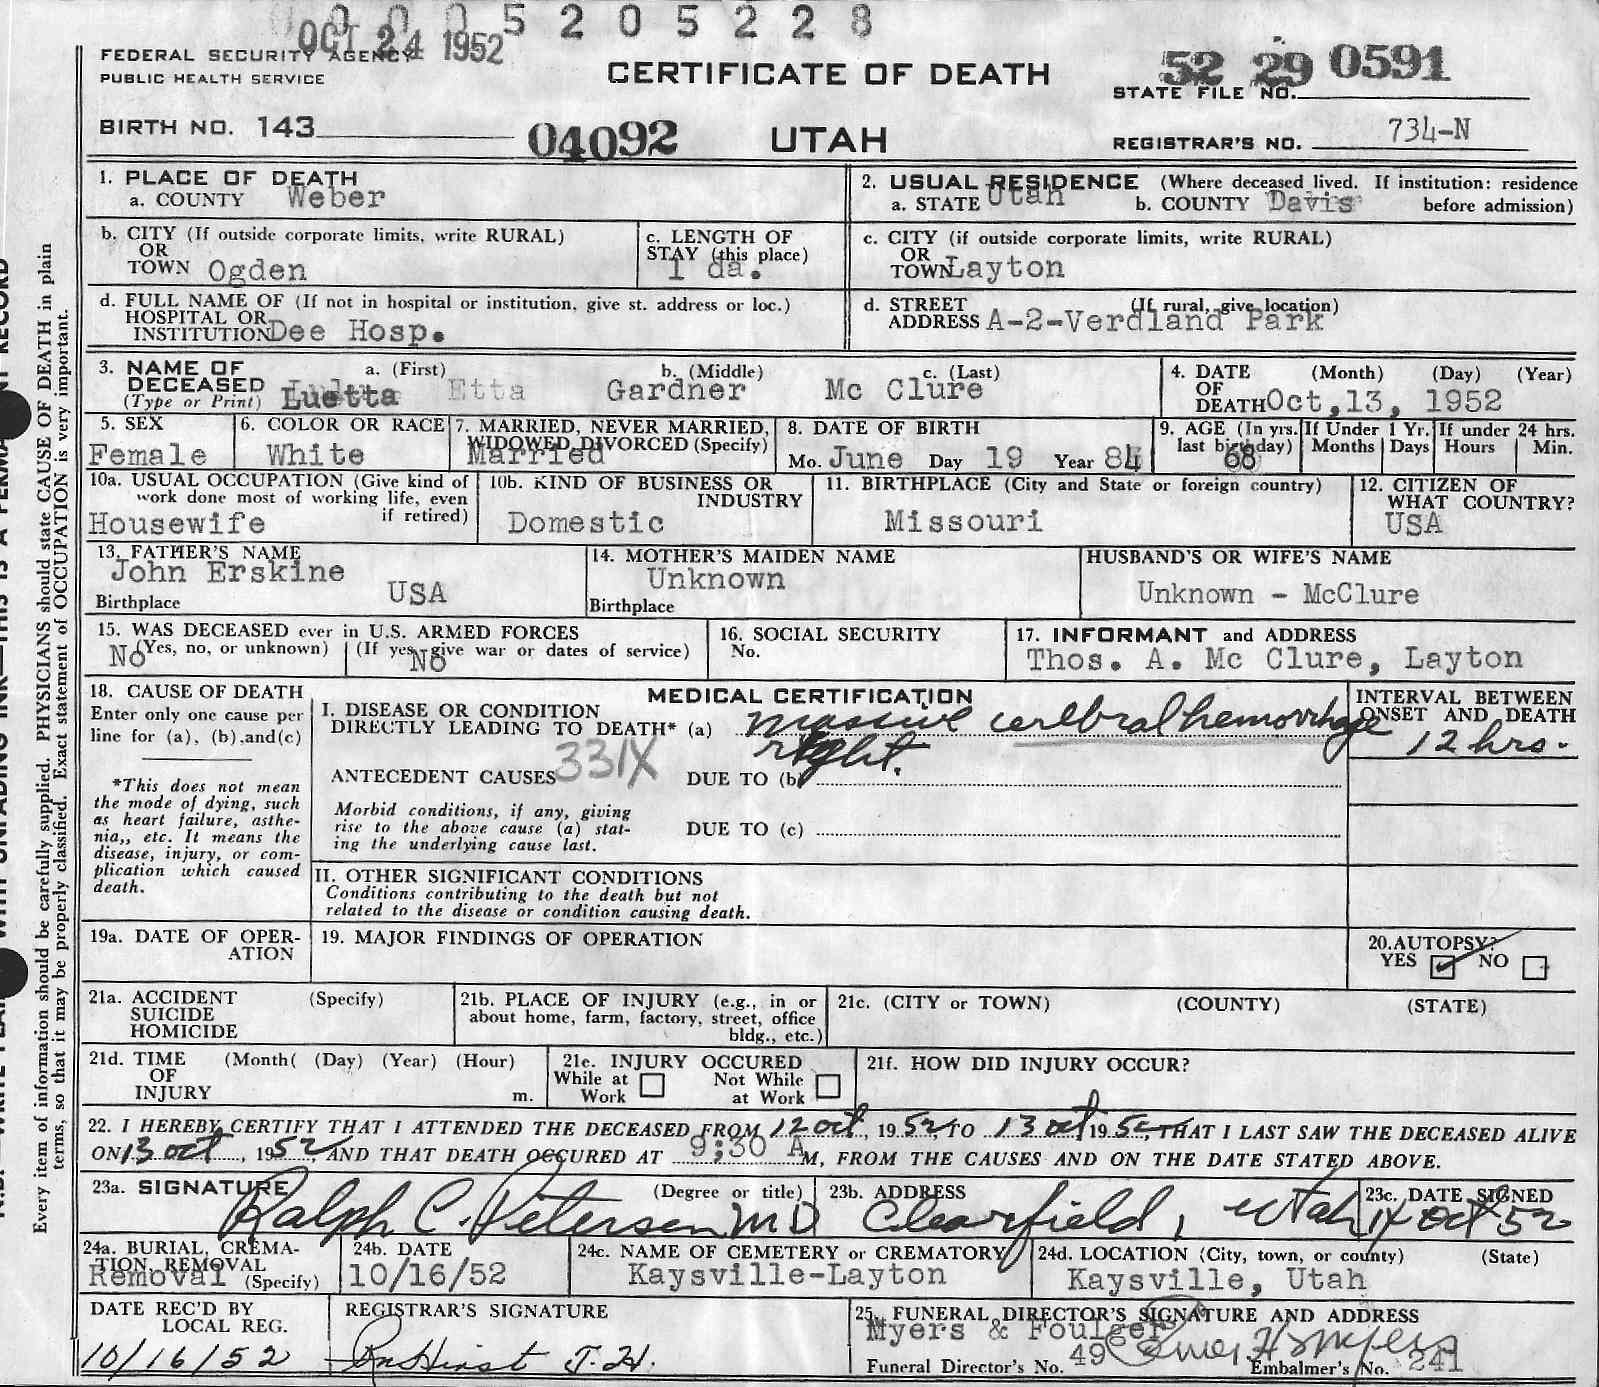 0 0 0 5 2 0 5 2 2 8
OCT 24 1952
FEDERAL SECURITY AGENCY
PUBLIC HEALTH SERVICE
CERTIFICATE OF DEATH
52 29 0591
STATE FILE NO.
BIRTH NO. 143
04092
UTAH
REGISTRAR'S NO. 734-N
1. PLACE OF DEATH
a. COUNTY Weber
2. USUAL RESIDENCE (Where deceased lived. If institution: residence
a. STATE Utah b. COUNTY Davis before admission)
b. CITY (If outside corporate limits, write RURAL)
OR
TOWN Ogden
c. LENGTH OF
STAY (this place)
1 da.
c. CITY (if outside corporate limits, write RURAL)
OR
TOWN Layton
d. FULL NAME OF (If not in hospital or institution, give st. address or loc.)
HOSPITAL OR
INSTITUTION Dee Hosp.
d. STREET (If rural, give location)
ADDRESS A-2-Verdland Park
3. NAME OF a. (First) b. (Middle) c. (Last)
DECEASED
(Type or Print) Luetta Etta Gardner Mc Clure
4. DATE (Month) (Day) (Year)
OF
DEATH Oct,13, 1952
5. SEX
Female
6. COLOR OR RACE
White
7. MARRIED, NEVER MARRIED,
WIDOWED, DIVORCED (Specify)
Married
8. DATE OF BIRTH
Mo. June Day 19 Year 84
9. AGE (In yrs. last birthday)
68
If Under 1 Yr.
Months Days
If under 24 hrs.
Hours Min.
10a. USUAL OCCUPATION (Give kind of
work done most of working life, even
if retired)
Housewife
10b. KIND OF BUSINESS OR
INDUSTRY
Domestic
11. BIRTHPLACE (City and State or foreign country)
Missouri
12. CITIZEN OF
WHAT COUNTRY?
USA
13. FATHER'S NAME
John Erskine
Birthplace USA
14. MOTHER'S MAIDEN NAME
Unknown
Birthplace
HUSBAND'S OR WIFE'S NAME
Unknown - McClure
15. WAS DECEASED ever in U.S. ARMED FORCES
(Yes, no, or unknown) (If yes, give war or dates of service)
No No
16. SOCIAL SECURITY
No.
17. INFORMANT and ADDRESS
Thos. A. Mc Clure, Layton
18. CAUSE OF DEATH
Enter only one cause per
line for (a), (b), and (c)
*This does not mean
the mode of dying, such
as heart failure, asthe-
nia,, etc. It means the
disease, injury, or com-
plication which caused
death.
MEDICAL CERTIFICATION
I. DISEASE OR CONDITION
DIRECTLY LEADING TO DEATH* (a) massive cerebral hemorrhage
right.
INTERVAL BETWEEN
ONSET AND DEATH
12 hrs.
ANTECEDENT CAUSES 331X DUE TO (b)
Morbid conditions, if any, giving
rise to the above cause (a) stat-
ing the underlying cause last.
DUE TO (c)
II. OTHER SIGNIFICANT CONDITIONS
Conditions contributing to the death but not
related to the disease or condition causing death.
19a. DATE OF OPER-
ATION
19. MAJOR FINDINGS OF OPERATION
20. AUTOPSY?
YES NO
21a. ACCIDENT (Specify)
SUICIDE
HOMICIDE
21b. PLACE OF INJURY (e.g., in or
about home, farm, factory, street, office
bldg., etc.)
21c. (CITY or TOWN) (COUNTY) (STATE)
21d. TIME (Month( (Day) (Year) (Hour)
OF
INJURY m.
21e. INJURY OCCURED
While at Work
Not While at Work
21f. HOW DID INJURY OCCUR?
22. I HEREBY CERTIFY THAT I ATTENDED THE DECEASED FROM 12 oct, 1952, TO 13 oct, 1952, THAT I LAST SAW THE DECEASED ALIVE
ON 13 oct, 1952, AND THAT DEATH OCCURED AT 9:30 A M, FROM THE CAUSES AND ON THE DATE STATED ABOVE.
23a. SIGNATURE (Degree or title)
Ralph C. Petersen MD
23b. ADDRESS
Clearfield, Utah
23c. DATE SIGNED
14 Oct 52
24a. BURIAL, CREMA-
TION, REMOVAL
(Specify)
Removal
24b. DATE
10/16/52
24c. NAME OF CEMETERY or CREMATORY
Kaysville-Layton
24d. LOCATION (City, town, or county) (State)
Kaysville, Utah
DATE REC'D BY
LOCAL REG.
10/16/52
REGISTRAR'S SIGNATURE
25. FUNERAL DIRECTOR'S SIGNATURE AND ADDRESS
Myers & Foulger
Funeral Director's No. 49 Embalmer's No. 241
Every item of information should be carefully supplied. PHYSICIANS should state CAUSE OF DEATH in plain
terms, so that it may be properly classified. Exact statement of OCCUPATION is very important.